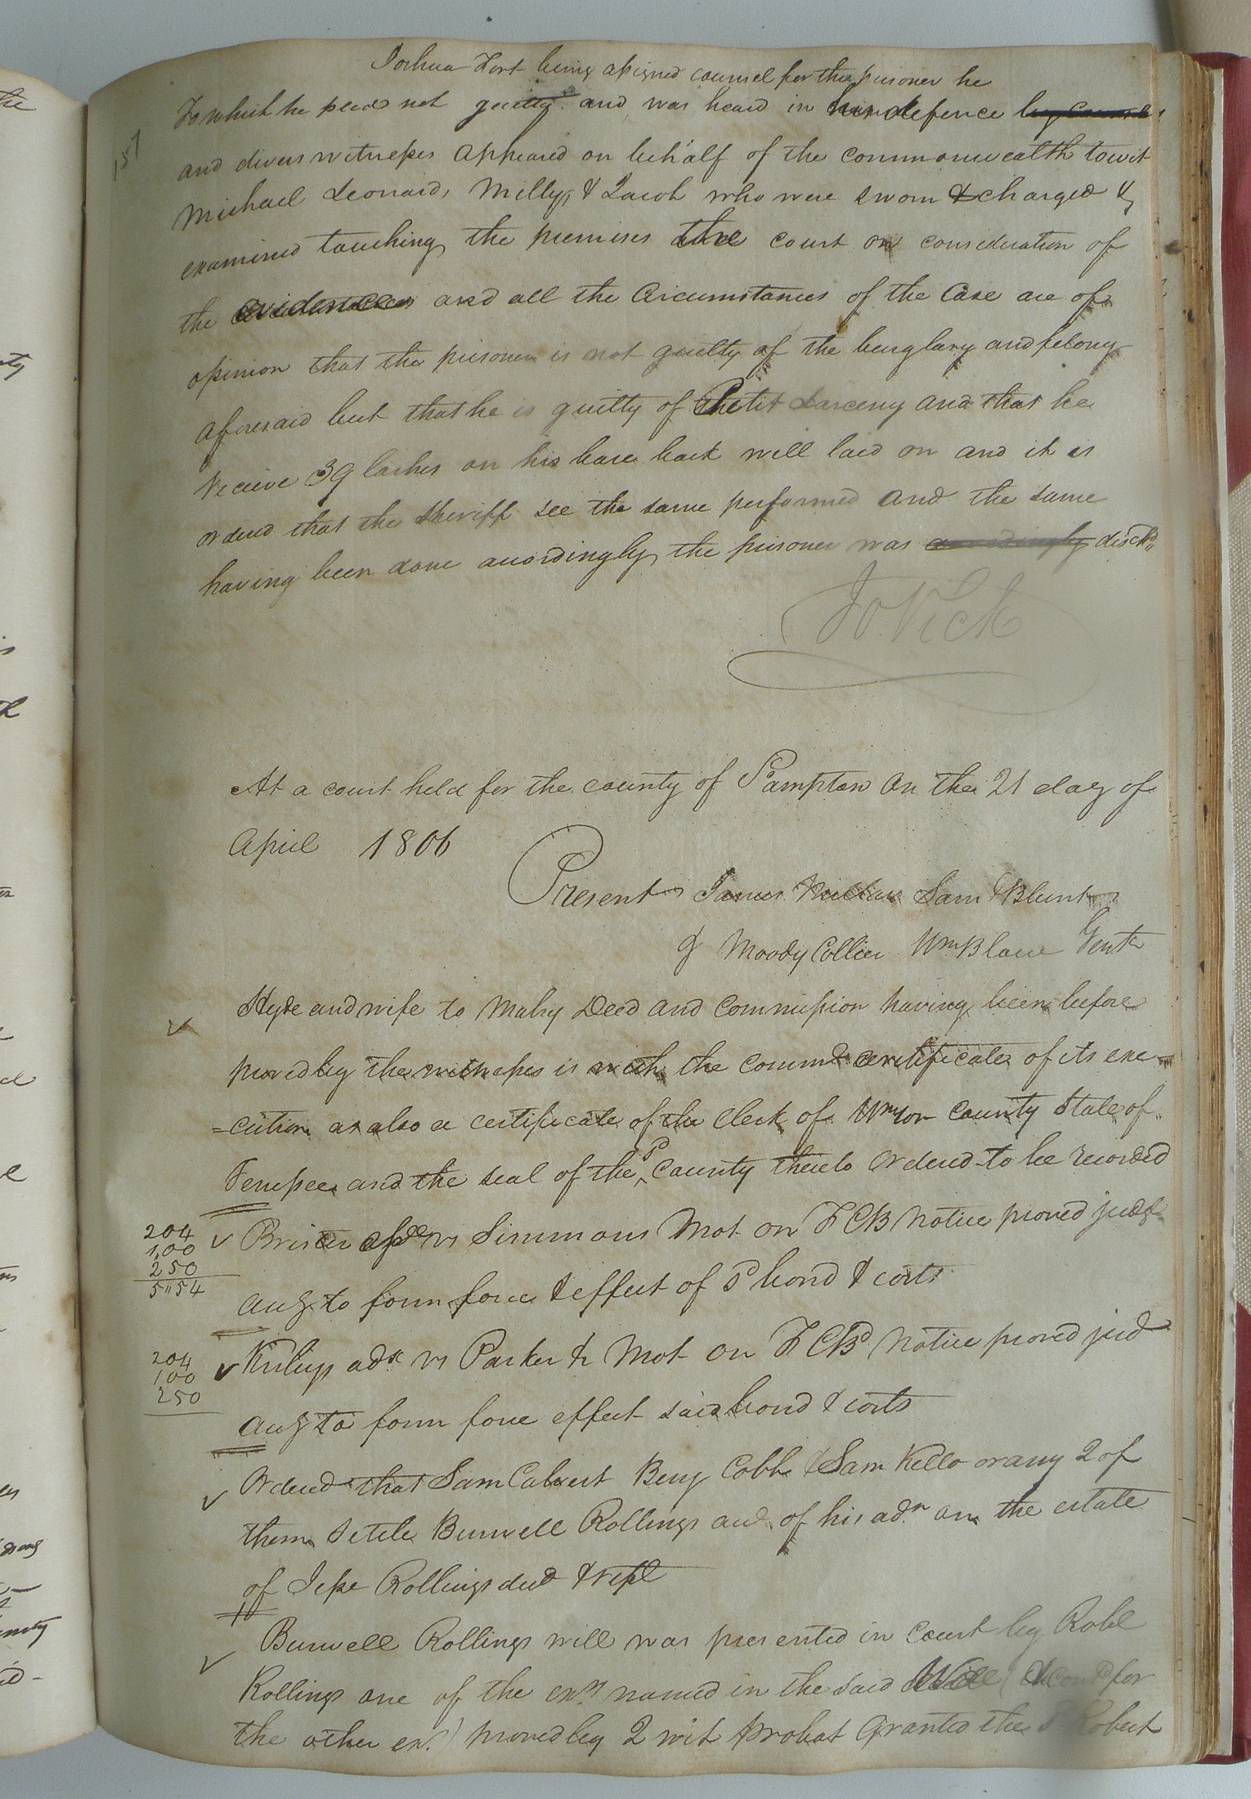 Joshua Fort being assigned counsel for the prisoner he
To which he plead not guilty and was heard in his defence by counsel
157
and divers witnesses appeared on behalf of the commonwealth towit
Michael Leonard, Milly, & Jacob who were sworn & charged &
examined touching the premises the court on consideration of
the evidences and all the Circumstances of the Case are of
opinion that the prisoner is not guilty of the burglary and felony
aforesaid but that he is guilty of Petit Larceny and that he
receive 39 lashes on his bare back will laid on and it is
ordered that the Sheriff see the same performed and the same
having been done accordingly the prisoner was accordingly dischd
Jo Vick
At a court held for the county of Sampton on the 21 day of
April 1806
Present James Sam Blunt
& Moody Collier Wm Blow Gent
Hyde and wife to Mabry Deed and Commission having been before
proved by the witnesses is with the comm & certificate of its exe=
=cution as also a certificate of the Clerk of Wmson County State of
Tenessee and the seal of the sd County thereto Ordered to be recorded
204
1,00
250
5"54
vs Simmons Mot on F C B Notice proved judg
aug to form force & effect of sd bond & costs
204
1,00
250
Kirbys adr vs Parker & Mot on F C B Notice proved jud
aug to form force effect said bond & costs
Ordered that Sam Calvert Benj Cobb & Sam Kello or any 2 of
them Settle Burwell Rollings acct of his adn on the estate
of Jesse Rollings decd & rept
Burwell Rollings will was presented in Court by Robt
Rollings one of the exrs named in the said Will ( for
the other exr) proved by 2 wit probat Granted the sd Robert